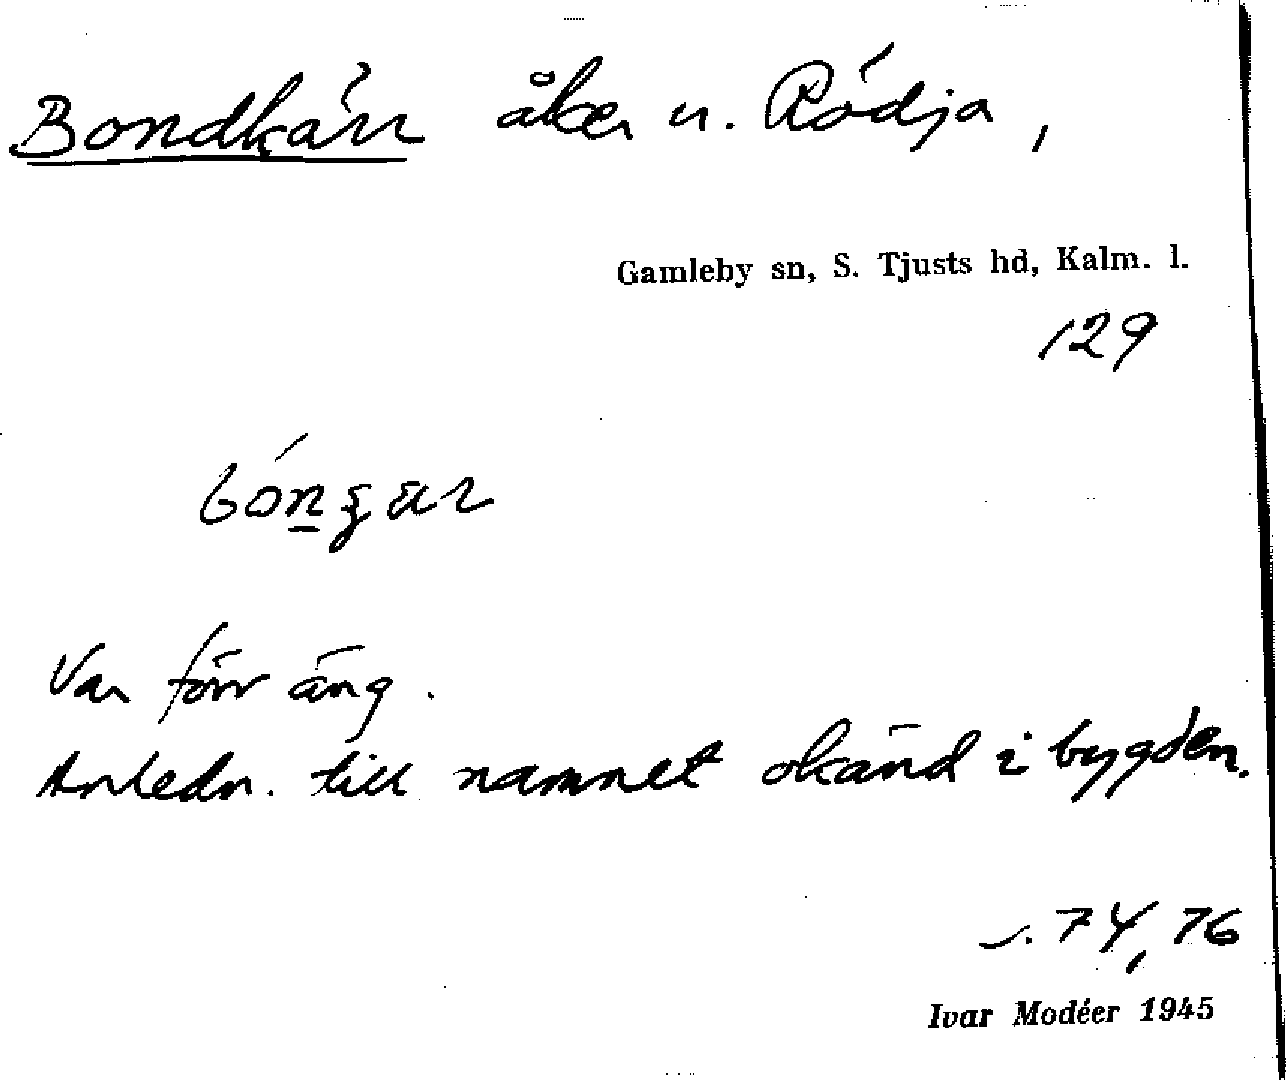 Bondkärr åker u. Rödja,
Gamleby sn, S. Tjusts hd, Kalm. l.
129
Var förr äng.
Anledn. till namnet okänd i bygden.
s. 74, 76
Ivar Modéer 1945